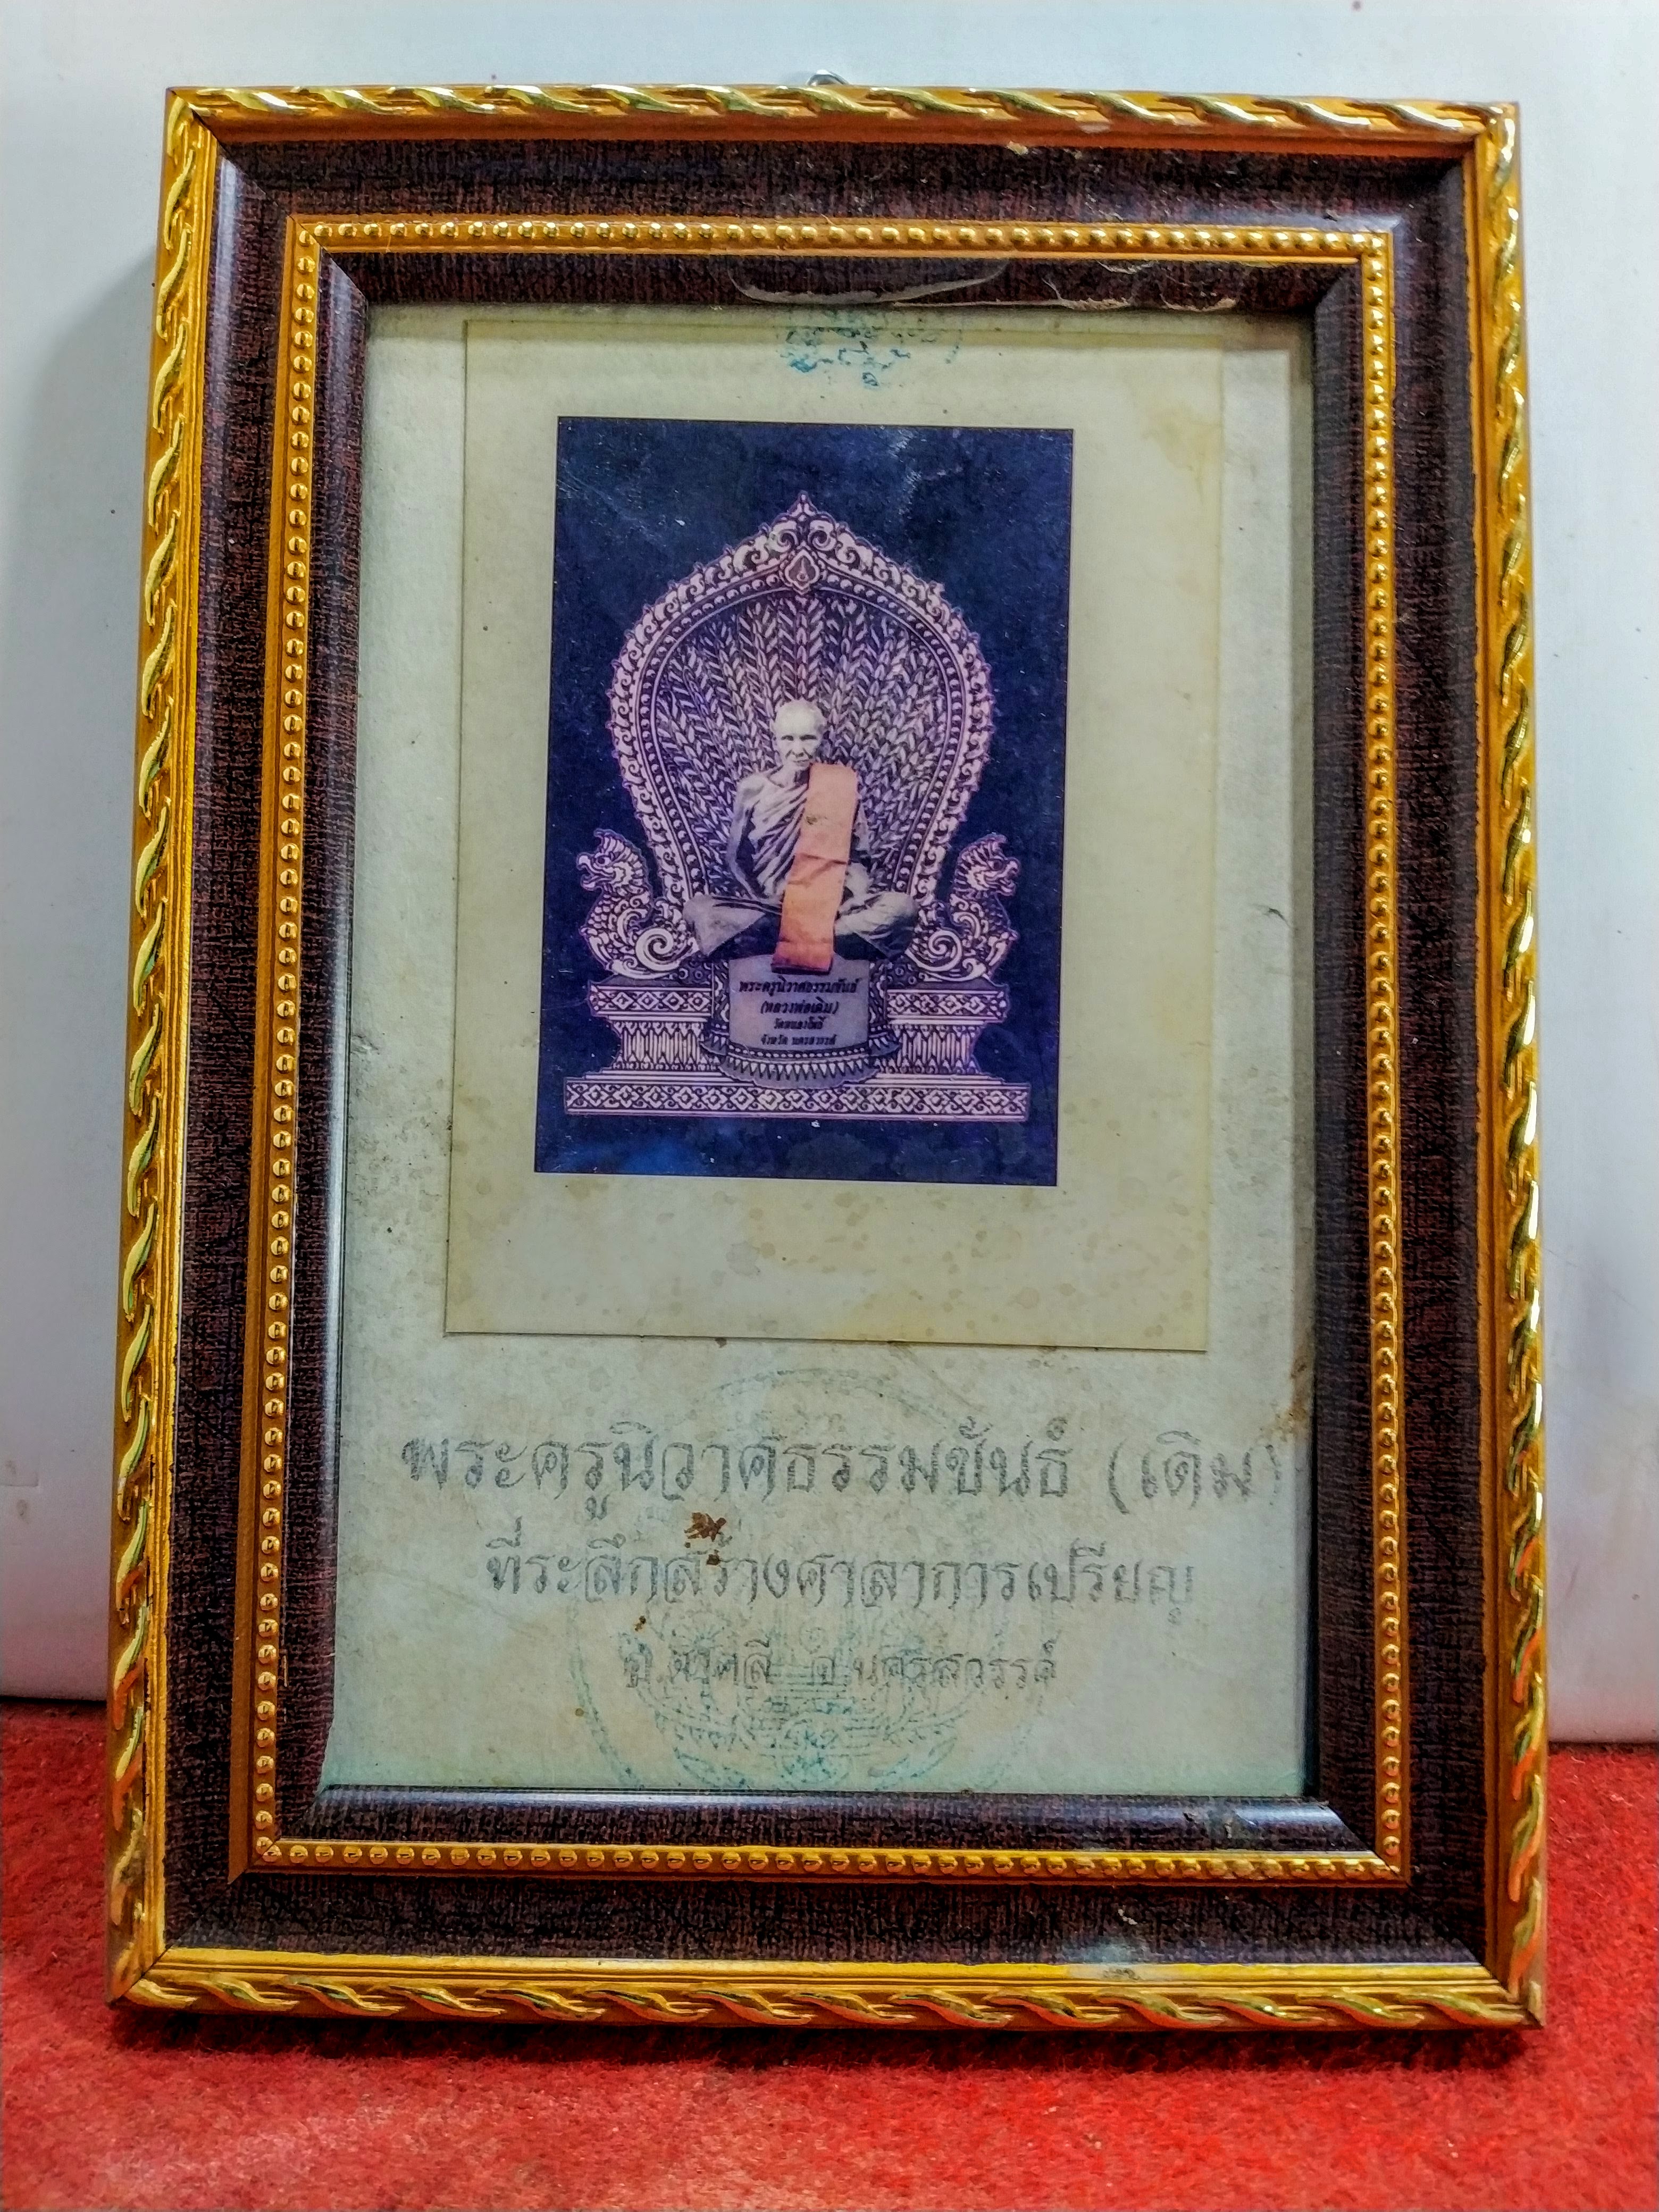 พระครูนิวาศธรรมขันธ์
(หลวงพ่อเดิม)
วัดหนองโพธิ์
จังหวัด นครสวรรค์
พระครูนิวาศธรรมขันธ์ (เดิม)
ที่ระลึกสร้างศาลาการเปรียญ
อ.ตาคลี จ.นครสวรรค์